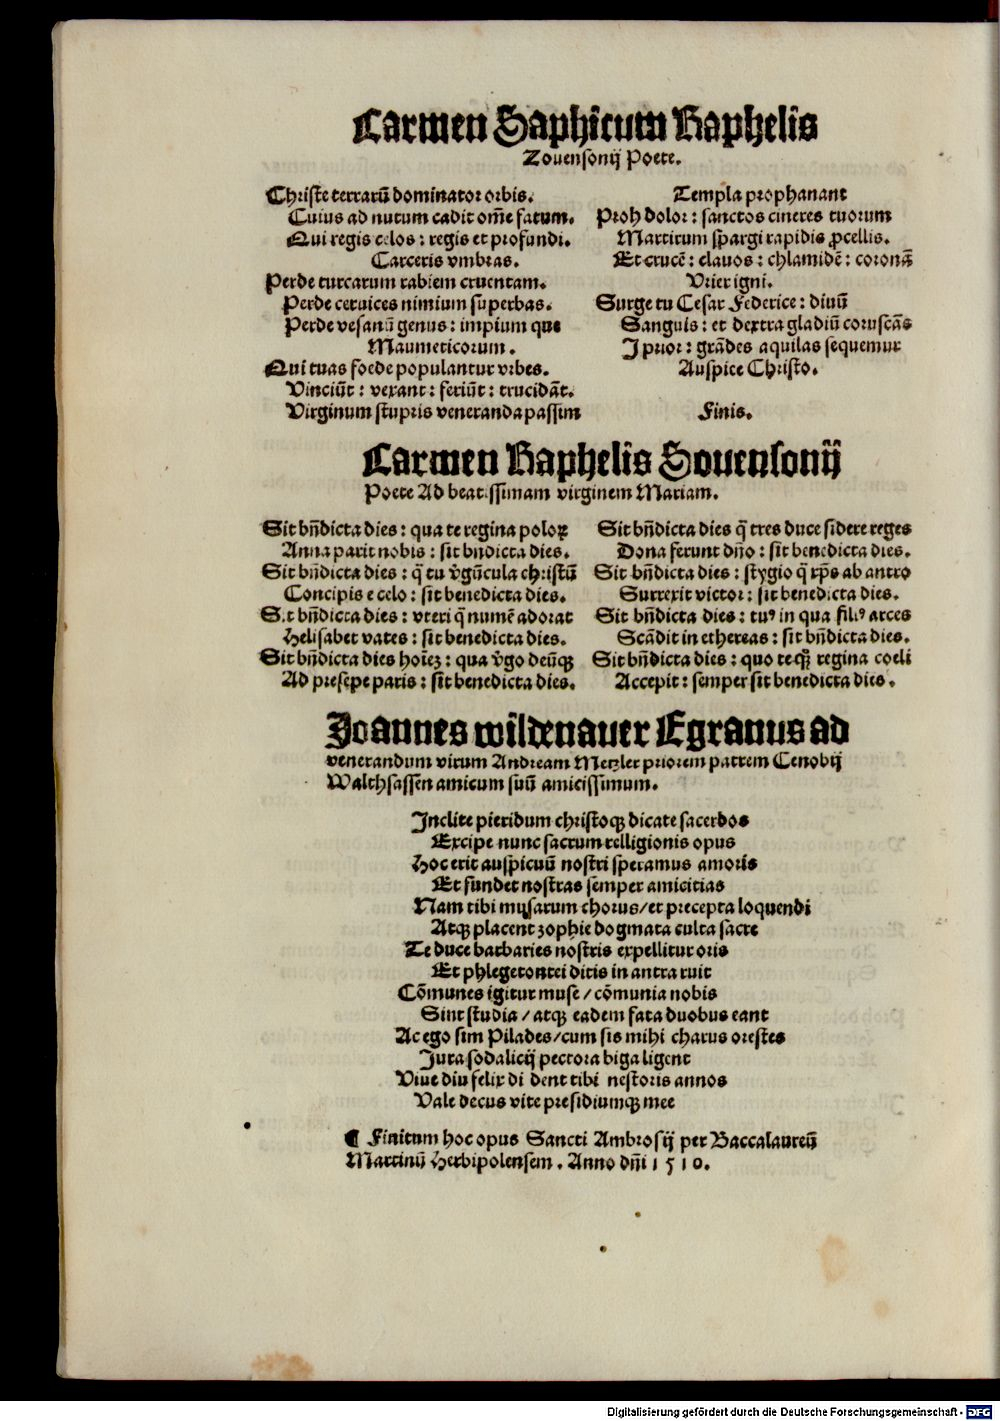 Carmen Saphicum Raphelis
Zouensonij Poete.
Christe terrarū dominator orbis.
Cuius ad nutum cadit om̄e fatum.
Qui regis celos : regis et profundi.
Carceris vmbras.
Perde turcarum rabiem cruentam.
Perde ceruices nimium superbas.
Perde vesanū genus : impium que
Maumeticorum.
Qui tuas foede populantur vrbes.
Vinciūt : vexant : feriūt : trucidāt.
Virginum stupris veneranda passim
Templa prophanant
Proh dolor : sanctos cineres tuorum
Martirum spargi rapidis ꝓcellis.
Et crucē : clauos : chlamidē : coronā
Vrier igni.
Surge tu Cesar Federice : diuū
Sanguis : et dextra gladiū coruscās
I prior : grādes aquilas sequemur
Auspice Christo.
Finis.
Carmen Raphelis Souensonij
Poete Ad beatissimam virginem Mariam.
Sit bn̄dicta dies : qua te regina poloꝝ
Anna parit nobis : sit bndicta dies.
Sit bn̄dicta dies : q̄ tu v̄gūcula christū
Concipis e celo : sit benedicta dies.
Sit bn̄dicta dies : vteri q̄ numē adorat
Helisabet vates : sit benedicta dies.
Sit bn̄dicta dies hoīeꝫ : qua v̄go deūqꝫ
Ad presepe paris : sit benedicta dies.
Sit bn̄dicta dies q̄ tres duce sidere reges
Dona ferunt dn̄o : sit benedicta dies.
Sit bn̄dicta dies : stygio q̄ xp̄s ab antro
Surrexit victor : sit benedicta dies.
Sit bn̄dicta dies : tuꝰ in qua filiꝰ arces
Scādit in ethereas : sit bn̄dicta dies.
Sit bn̄dicta dies : quo te regina coeli
Accepit : semper sit benedicta dies.
Joannes wildenauer Egranus ad
venerandum virum Andream Metzler priorem patrem Cenobij
Walthsassen amicum suū amicissimum.
Inclite pieridum christoqꝫ dicate sacerdos
Excipe nunc sacrum relligionis opus
Hoc erit auspicuū nostri speramus amoris
Et fundet nostras semper amicitias
Nam tibi musarum chorus/et precepta loquendi
Atqꝫ placent zophie dogmata culta sacre
Te duce barbaries nostris expellitur oris
Et phlegetontei ditis in antra ruit
Cōmunes igitur muse/cōmunia nobis
Sint studia/atqꝫ eadem fata duobus eant
Ac ego sim Pilades/cum sis mihi charus orestes
Jura sodalicij pectora biga ligent
Viue diu felix di dent tibi nestoris annos
Vale decus vite presidiumqꝫ mee
¶ Finitum hoc opus Sancti Ambrosij per Baccalaureū
Martinū Herbipolensem. Anno dn̄i 1510.
Digitalisierung gefördert durch die Deutsche Forschungsgemeinschaft - DFG